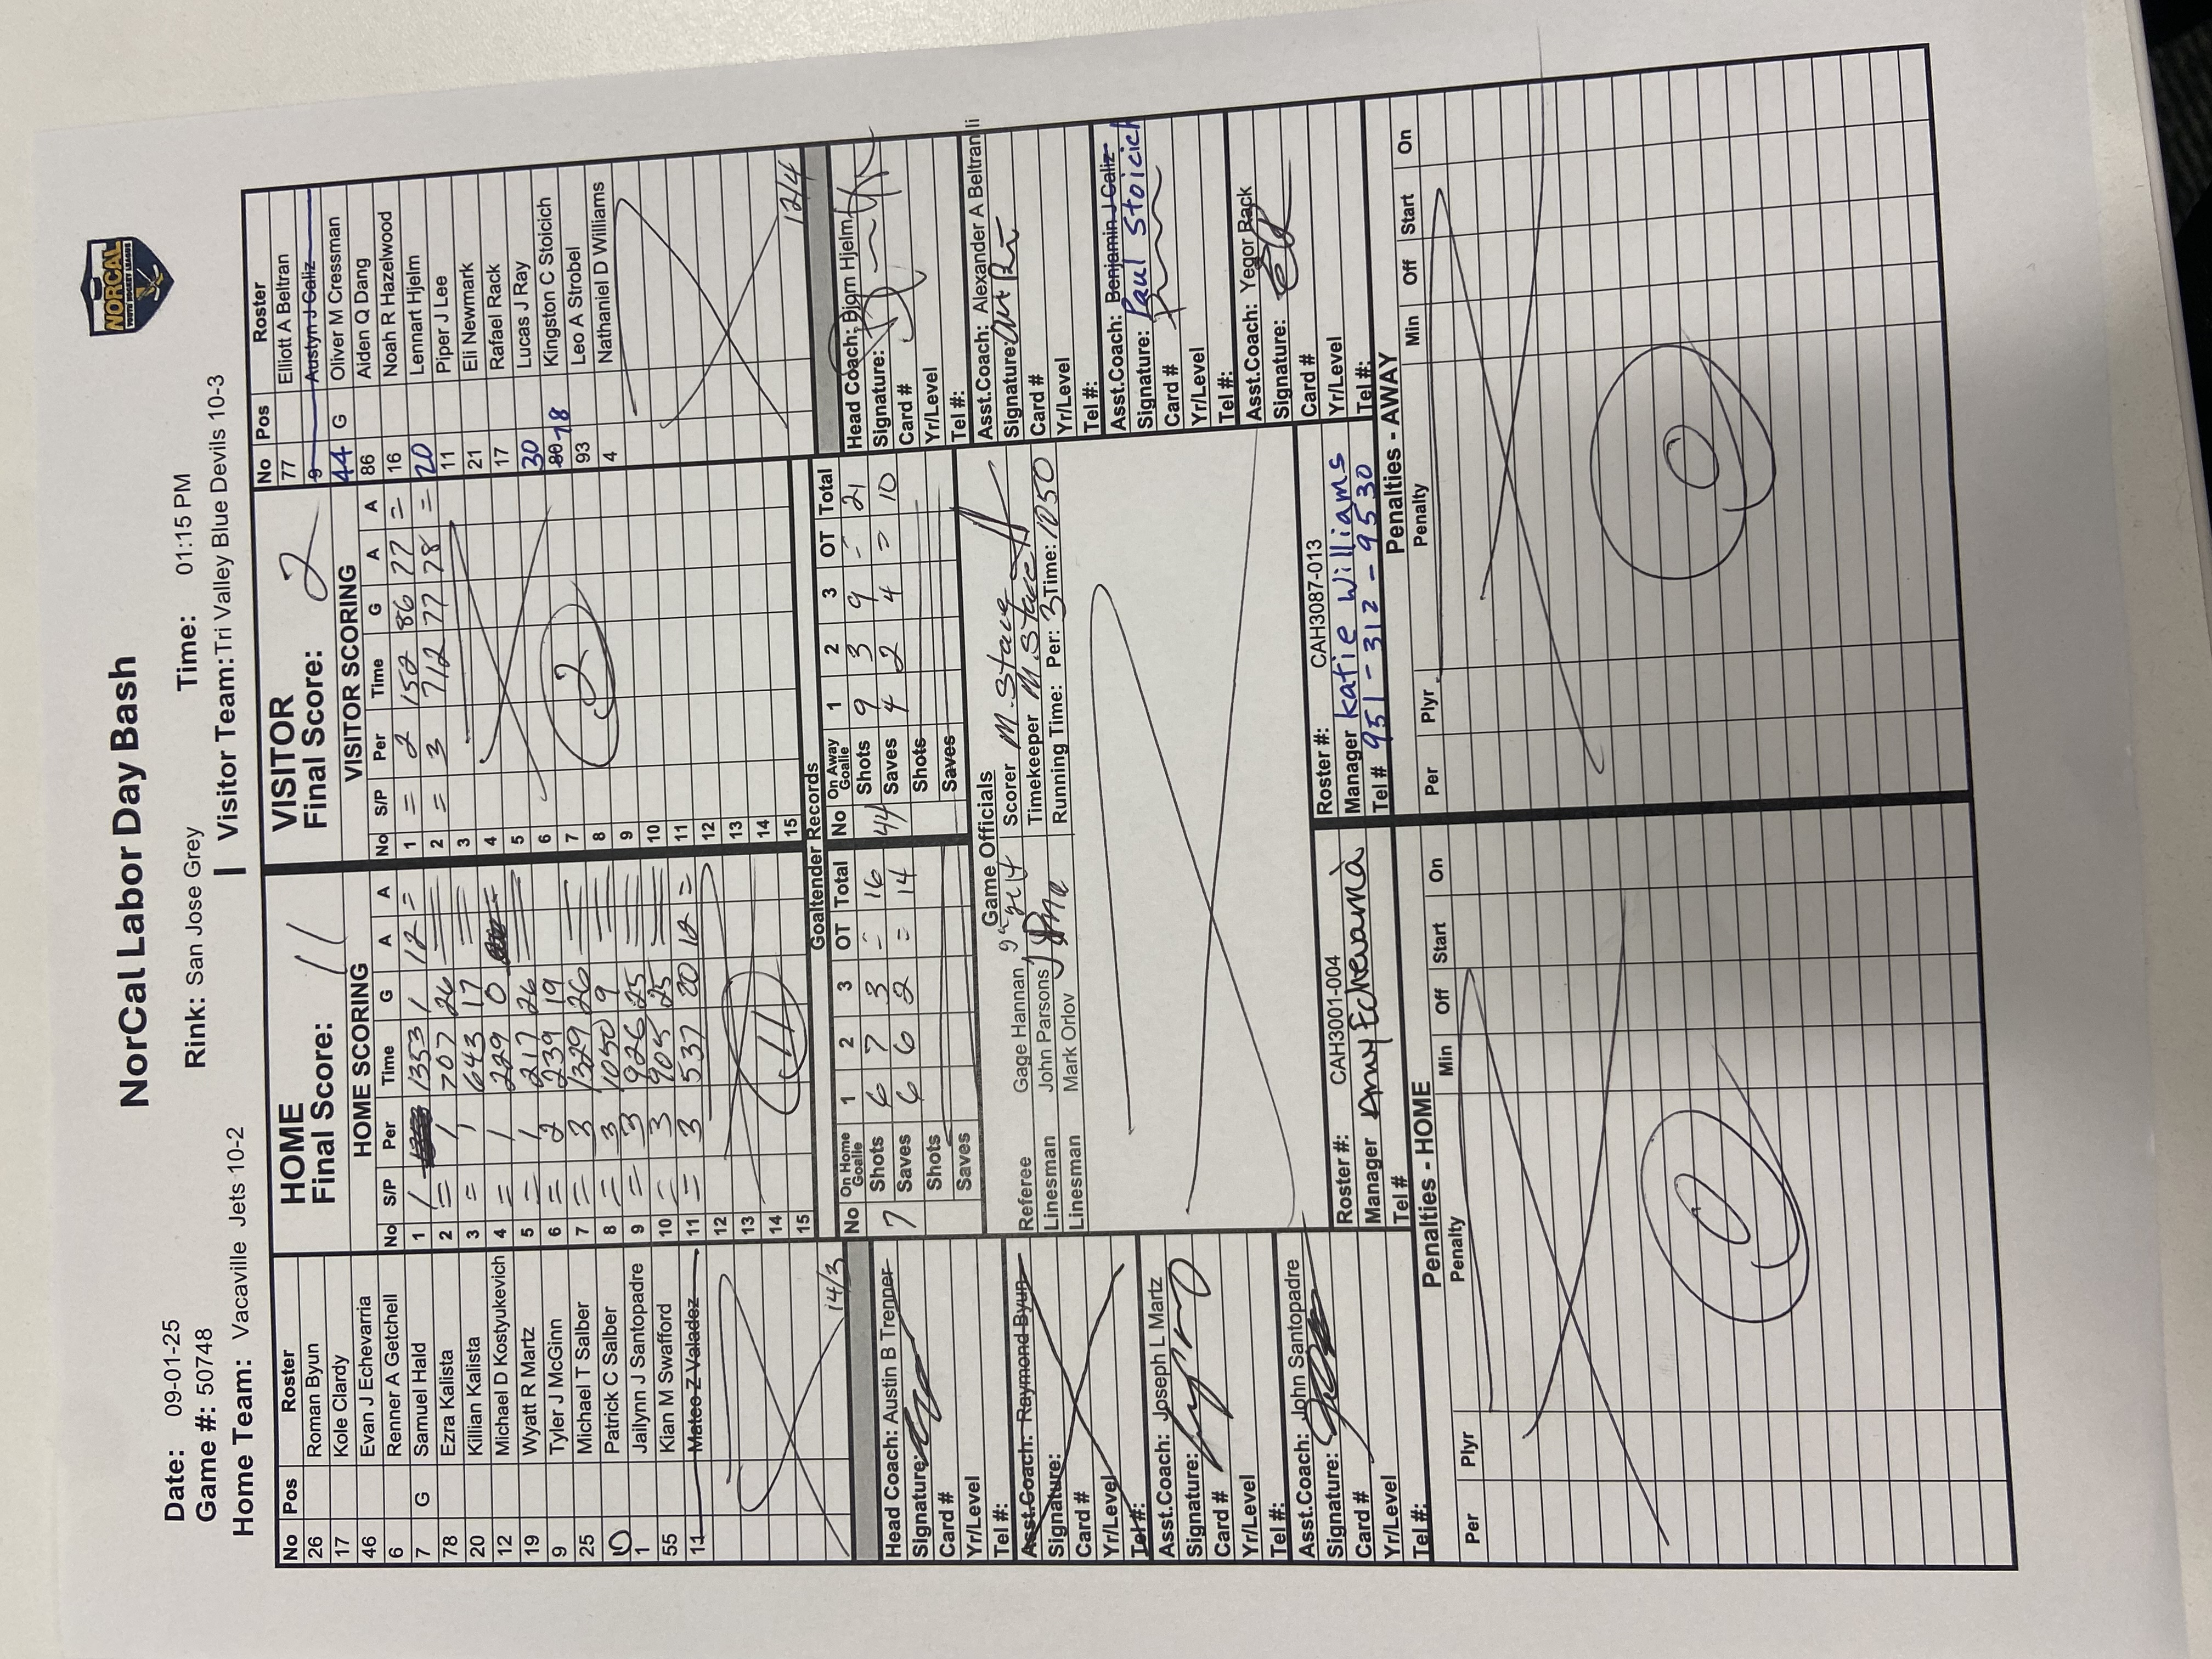 NorCal Labor Day Bash
NORCAL
Date: 09-01-25
Rink: San Jose Grey
Time: 01:15 PM
Game #: 50748
Home Team: Vacaville Jets 10-2
Visitor Team: Tri Valley Blue Devils 10-3
No Pos Roster
26 Roman Byun
17 Kole Clardy
46 Evan J Echevarria
6 Renner A Getchell
7 G Samuel Hald
78 Ezra Kalista
20 Killian Kalista
12 Michael D Kostyukevich
19 Wyatt R Martz
9 Tyler J McGinn
25 Michael T Salber
10 Patrick C Salber
1 Jailynn J Santopadre
55 Kian M Swafford
11 Mateo Z Valadez
14/3
HOME
Final Score: 11
HOME SCORING
No S/P Per Time G A A
1 1 1353 1 12 =
2 = 1 707 26
3 = 1 643 17
4 = 1 229 0
5 = 1 217 26
6 = 2 239 19
7 = 3 1329 26
8 = 3 1050 9
9 = 3 926 25
10 = 3 905 25
11 = 3 537 20 12 =
12
13
14
15
11
VISITOR
Final Score: 2
VISITOR SCORING
No S/P Per Time G A A
1 = 2 152 86 77 =
2 = 3 712 77 78 =
3
4
5
6
7
8
9
10
11
12
13
14
15
2
No Pos Roster
77 Elliott A Beltran
9 Austyn J Caliz
44 G Oliver M Cressman
86 Aiden Q Dang
16 Noah R Hazelwood
20 Lennart Hjelm
11 Piper J Lee
21 Eli Newmark
17 Rafael Rack
30 Lucas J Ray
80 78 Kingston C Stoicich
93 Leo A Strobel
4 Nathaniel D Williams
12/4
Goaltender Records
No On Home Goalie 1 2 3 OT Total
7 Shots 6 7 3 - 16
Saves 6 6 2 = 14
Shots
Saves
No On Away Goalie 1 2 3 OT Total
44 Shots 9 3 9 - 21
Saves 4 2 4 = 10
Shots
Saves
Head Coach: Austin B Trenner
Signature:
Card #
Yr/Level
Tel #:
Asst.Coach: Raymond Byun
Signature:
Card #
Yr/Level
Tel #:
Asst.Coach: Joseph L Martz
Signature:
Card #
Yr/Level
Tel #:
Asst.Coach: John Santopadre
Signature:
Card #
Yr/Level
Tel #:
Game Officials
Referee Gage Hannan
Linesman John Parsons
Linesman Mark Orlov
Scorer M. Stave
Timekeeper M. Stave
Running Time: Per: 3 Time: 1050
Head Coach: Bjorn Hjelm
Signature:
Card #
Yr/Level
Tel #:
Asst.Coach: Alexander A Beltran li
Signature:
Card #
Yr/Level
Tel #:
Asst.Coach: Benjamin J Caliz
Paul Stoicich
Signature:
Card #
Yr/Level
Tel #:
Asst.Coach: Yegor Rack
Signature:
Card #
Yr/Level
Tel #:
Roster #: CAH3001-004
Manager Amy Echevarria
Tel #
Roster #: CAH3087-013
Manager Katie Williams
Tel # 951-312-9530
Penalties - HOME
Per Plyr Penalty Min Off Start On
0
Penalties - AWAY
Per Plyr Penalty Min Off Start On
0